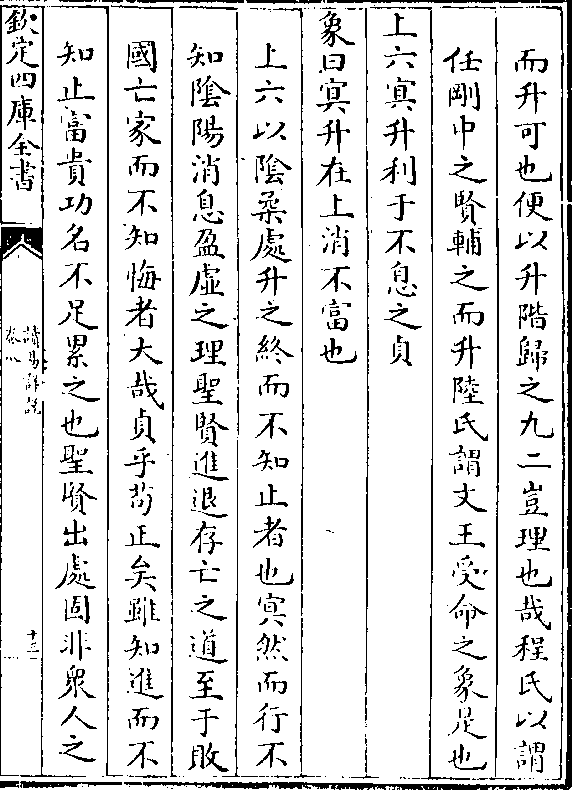 而升可也便以升階歸之九二豈理也哉程氏以謂
任剛中之賢輔之而升陸氏謂文王受命之象是也
上六冥升利于不息之貞
象曰冥升在上消不富也
上六以陰柔處升之終而不知止者也冥然而行不
知陰陽消息盈虛之理聖賢進退存亡之道至于敗
國亡家而不知悔者大哉貞乎茍正矣雖知進而不
知止富貴功名不足累之也聖賢出處固非衆人之
欽定四庫全書
讀易詳說
卷八
十三